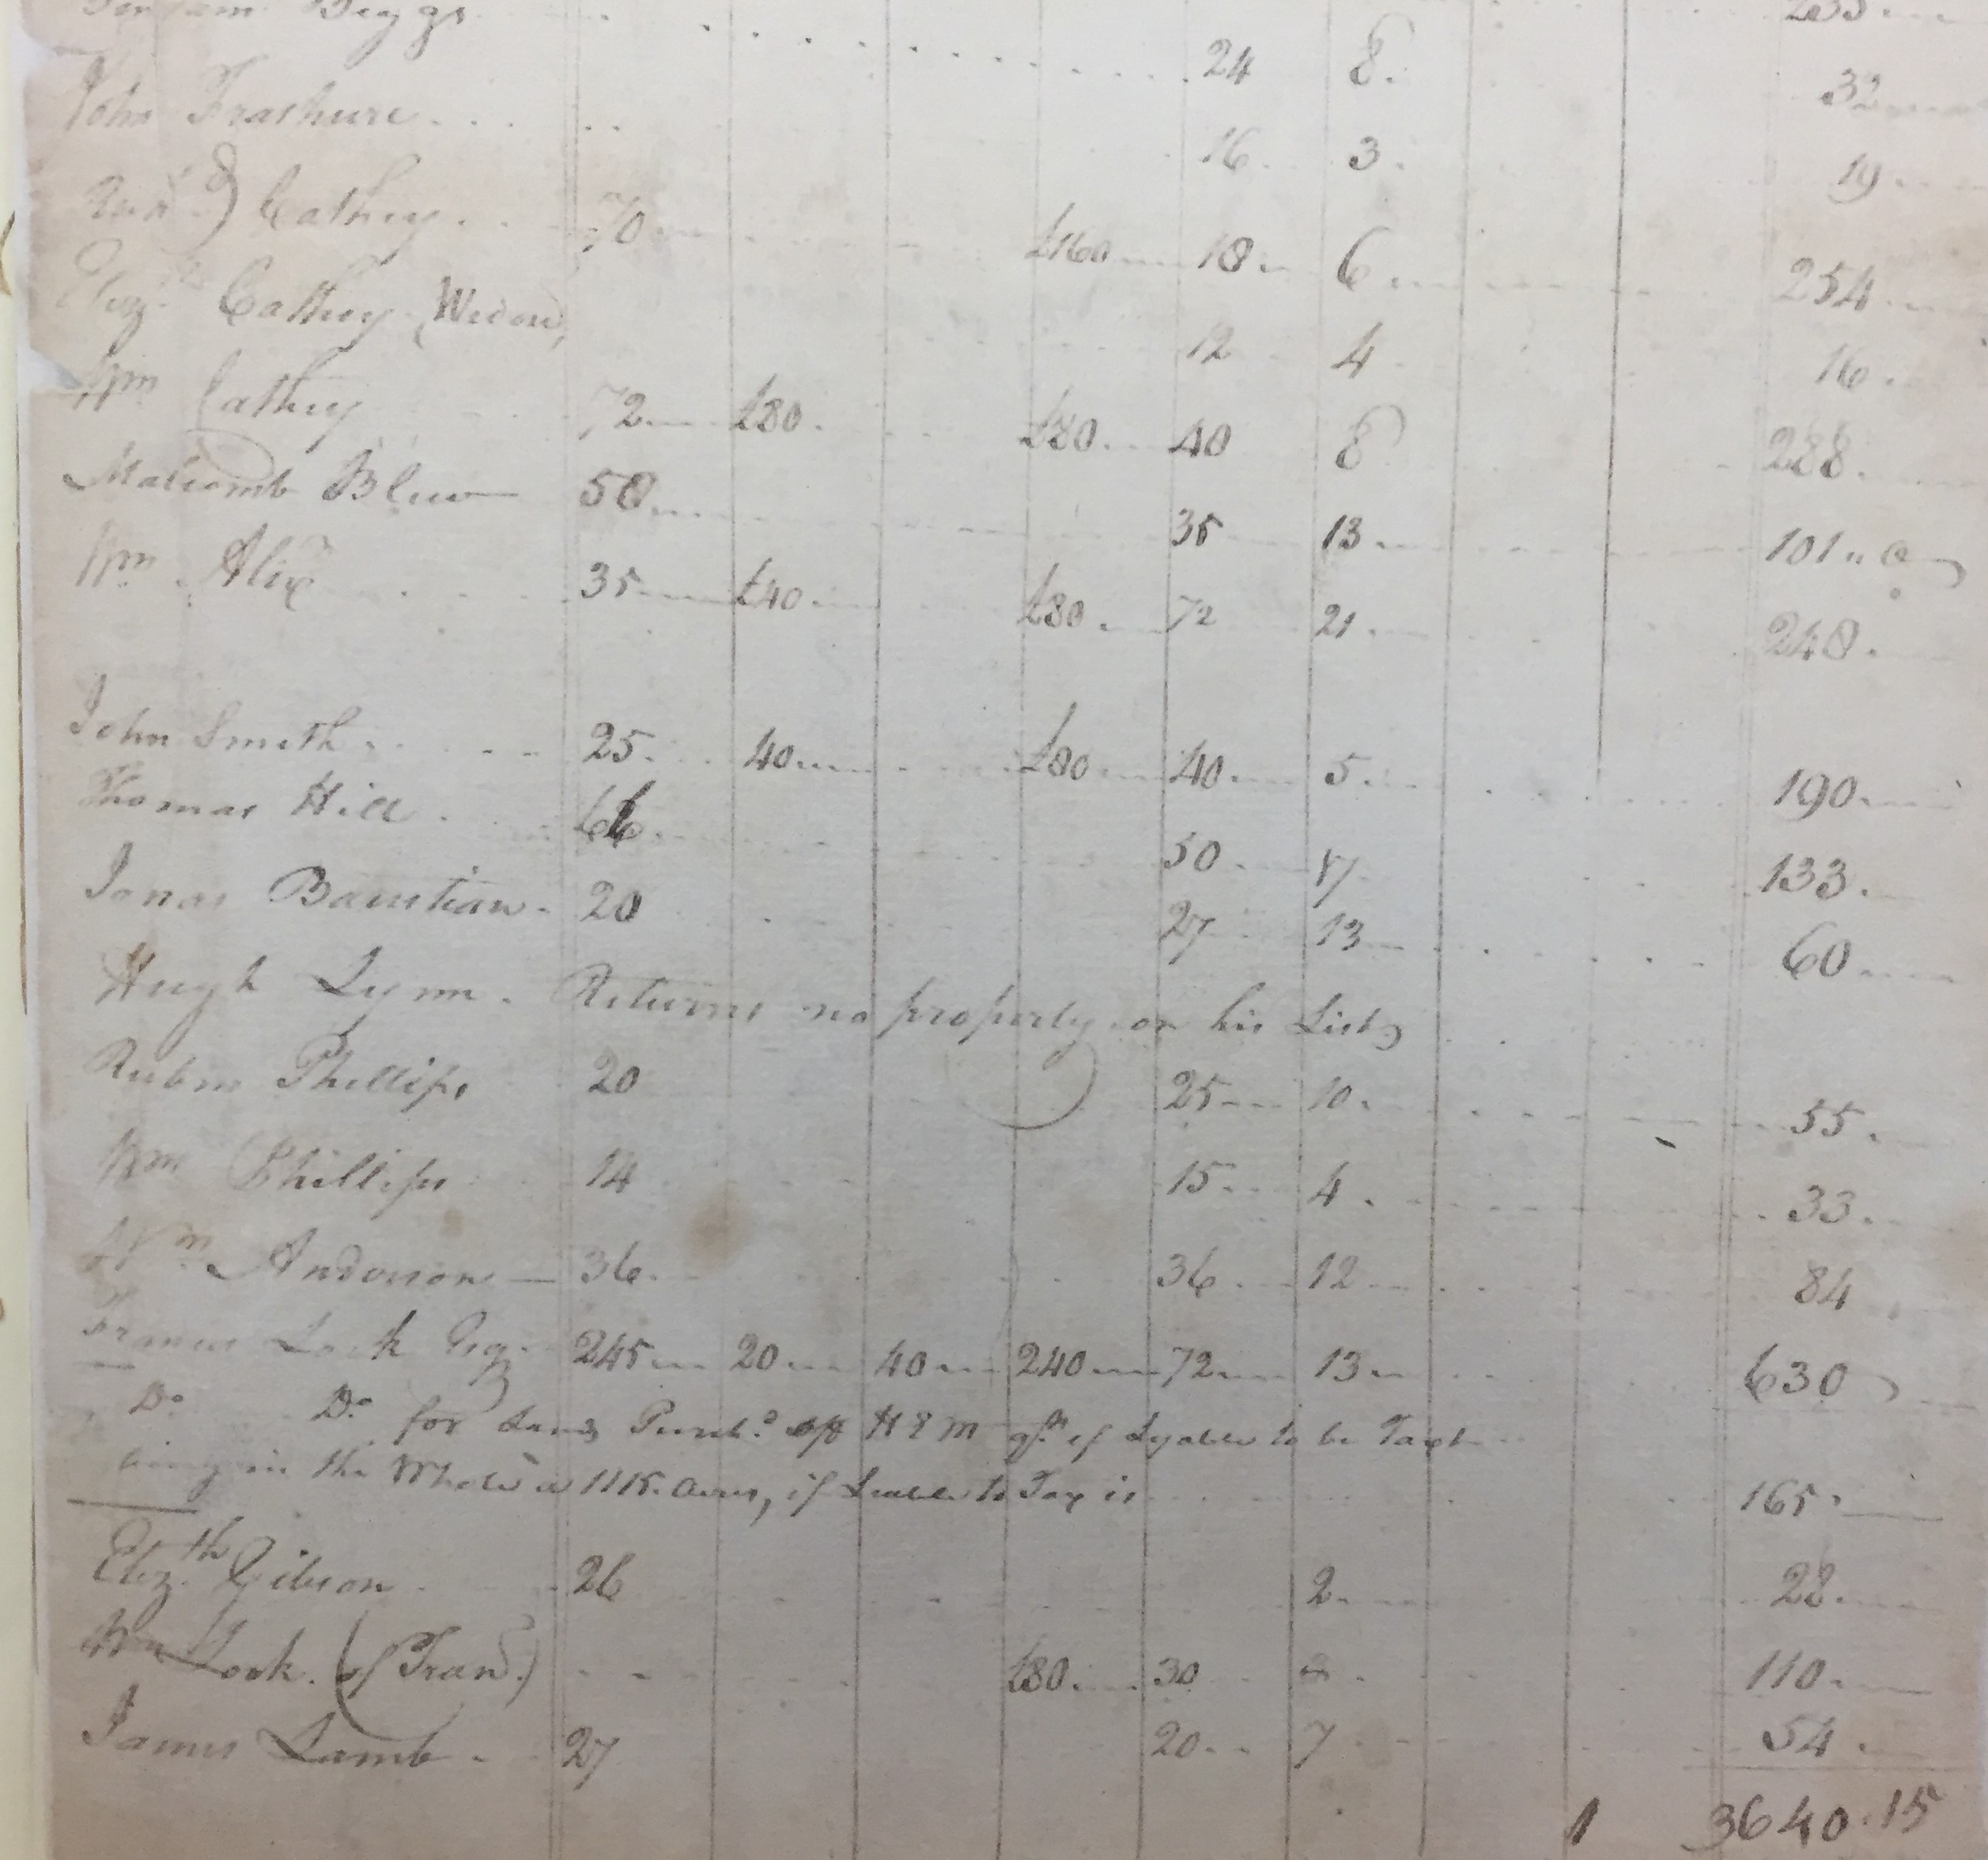 Beggs 24 8. 233
John Frashure . . . 16. 3. 32
Cathey. 70 £160 18 6 19
Elizth. Cathey (Widow) 12 4 254
Wm Cathey 72 £80. £80. 40 8 16.
Malcomb Blue 50 35 13. 288.
Wm. Alexd 35 £40 £80. 72 21. 101.. 0
248.
John Smith 25. 40 £80 40. 5. 190.
Thomas Hill 66 50. 17 133.
Jonas Baustian. 20 27 13 60
Hugh Lynn. Returns no property on his List
Rubin Phillips 20 25 10. 55.
Wm Phillips 14 15. 4. 33.
Wm. Anderson 36. 36. 12 84
Francis Lock Esq. 245 20 40 240 72 13 630
Do. Do. for Land Purchd. of H E M if Lyable to be Taxt
being in the Whole 1115. acres, if Liable to Tax is 165.
Elizth. Gibson 26 2. 28.
Wm Lock. (of Frans.) £80. 30 110.
James Lamb. 27 20. 7 54.
1 3640.15